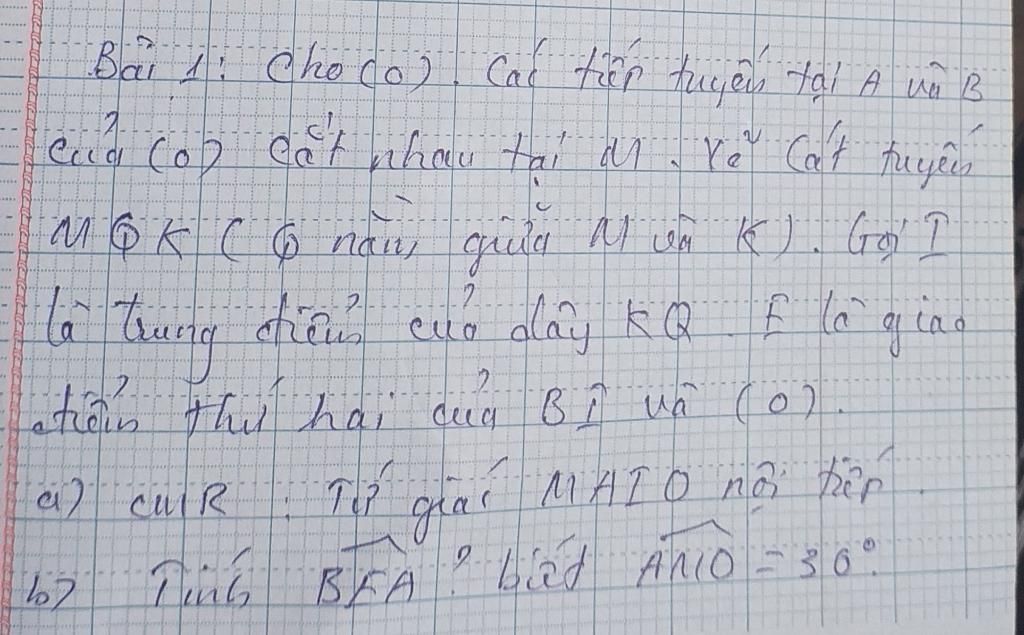 Bài 1: Cho (O). Các tiếp tuyến tại A và B
của (O) cắt nhau tại M. Vẽ Cát tuyến
MQK (Q nằm giữa M và K). Gọi I
là trung điểm của dây KQ. E là giao
điểm thứ hai của BI và (O).
a) CMR: Tứ giác MAIO nội tiếp.
b) Tính BEA? biết AMO = 30°.